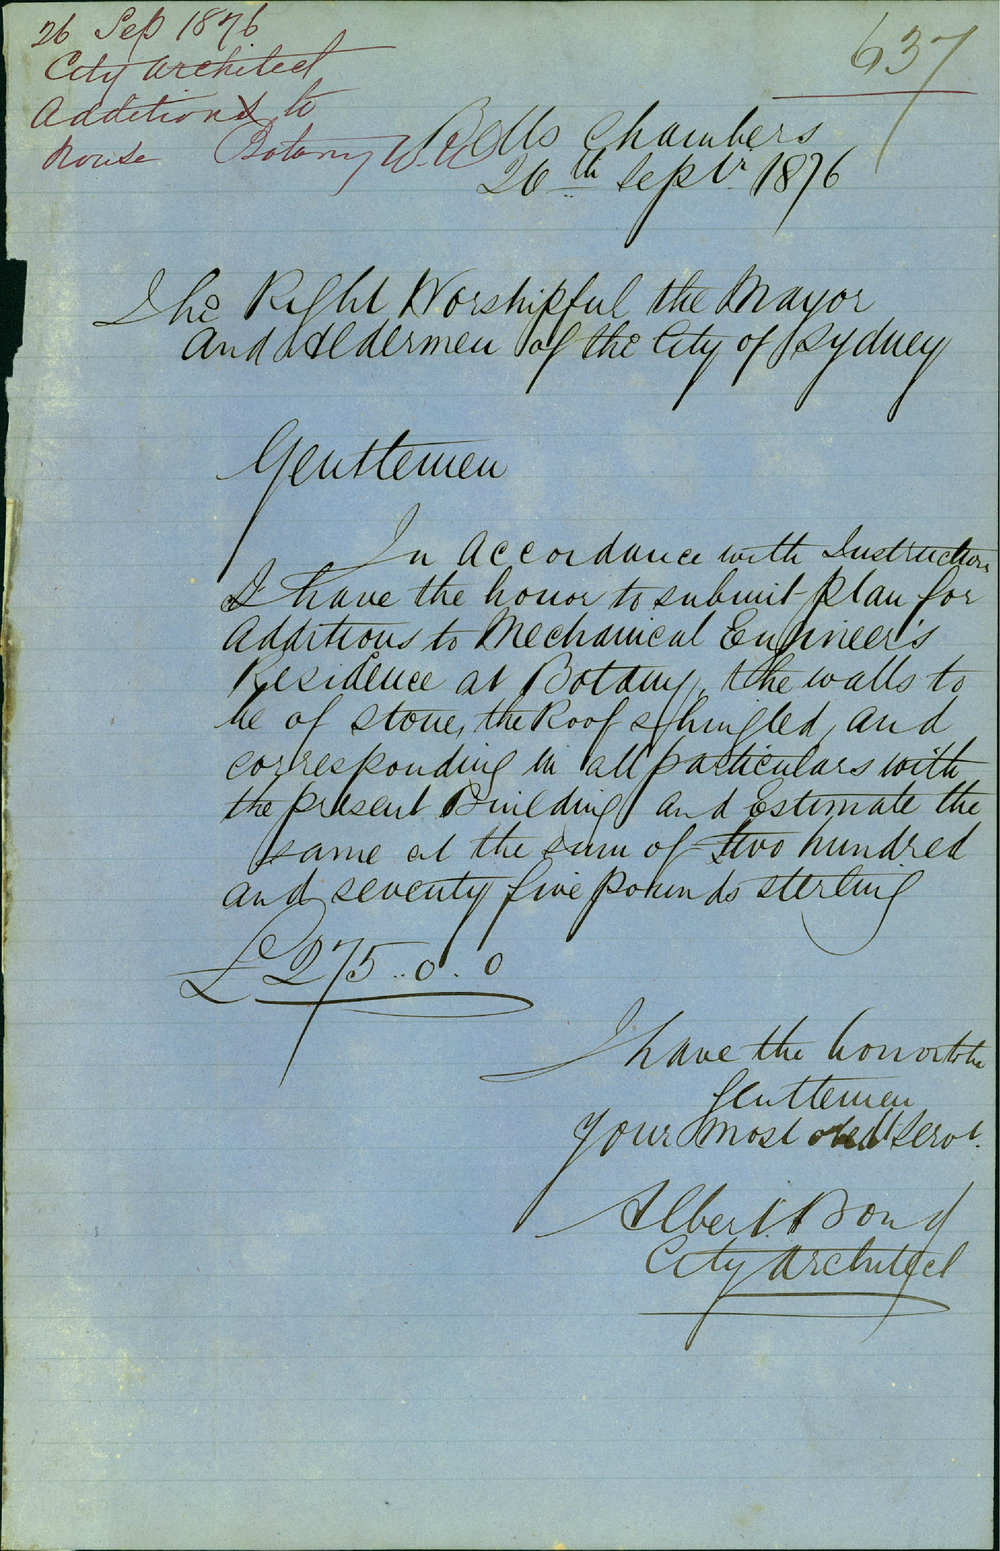 26 Sep 1876
City Architect
Additions to
house Botany W.W
637
Bells Chambers
26th Septr 1876
The Right Worshipful the Mayor
and Aldermen of the City of Sydney
Gentlemen
In accordance with Instructions
I have the honor to submit plan for
additions to Mechanical Engineer's
Residence at Botany, the walls to
be of stone, the Roof shingled, and
corresponding in all particulars with
the present Building and Estimate the
same at the sum of two hundred
and seventy five pounds sterling
£275..0.0
I have the honor to be
Gentlemen
Your most obedt Servt.
Albert Bond
City Architect